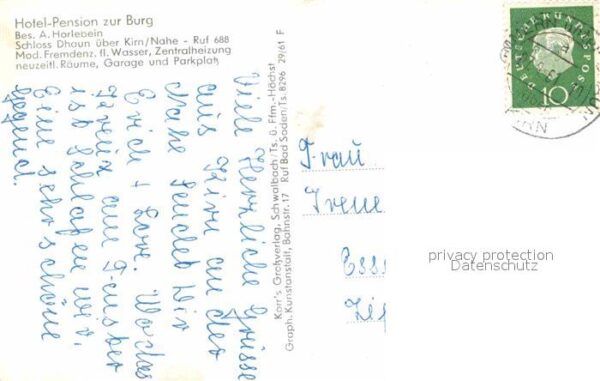 Hotel-Pension zur Burg
Bes. A. Horlebein
Schloss Dhaun über Kirn/Nahe - Ruf 688
Mod. Fremdenz. fl. Wasser, Zentralheizung
neuzeitl. Räume, Garage und Parkplatz
Viele Herzliche Grüsse
aus Kirn an der
Nahe sendet Dir
Erich + Lore. Wo das
Kreuz am Fenster
ist Schlafen wir.
Eine sehr schöne
Gegend.
Korr's Großverlag, Schwalbach/Ts. ü. Ffm.-Höchst
Graph. Kunstanstalt, Bahnstr. 17 Ruf Bad Soden/Ts. 8296 29/61 F
Frau
Irene
Ess
privacy protection
Datenschutz
DEUTSCHE BUNDESPOST
10